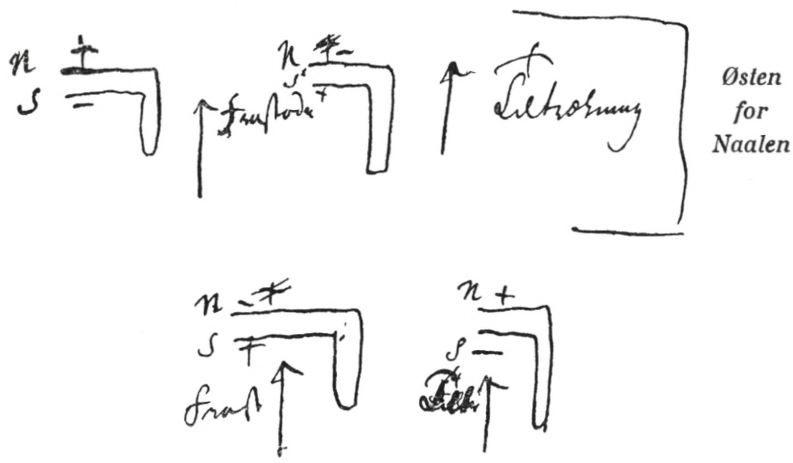 N +
S −
N −
S +
Frastødn
Tiltrækning
Østen
for
Naalen
N −
S +
Frast
N +
S −